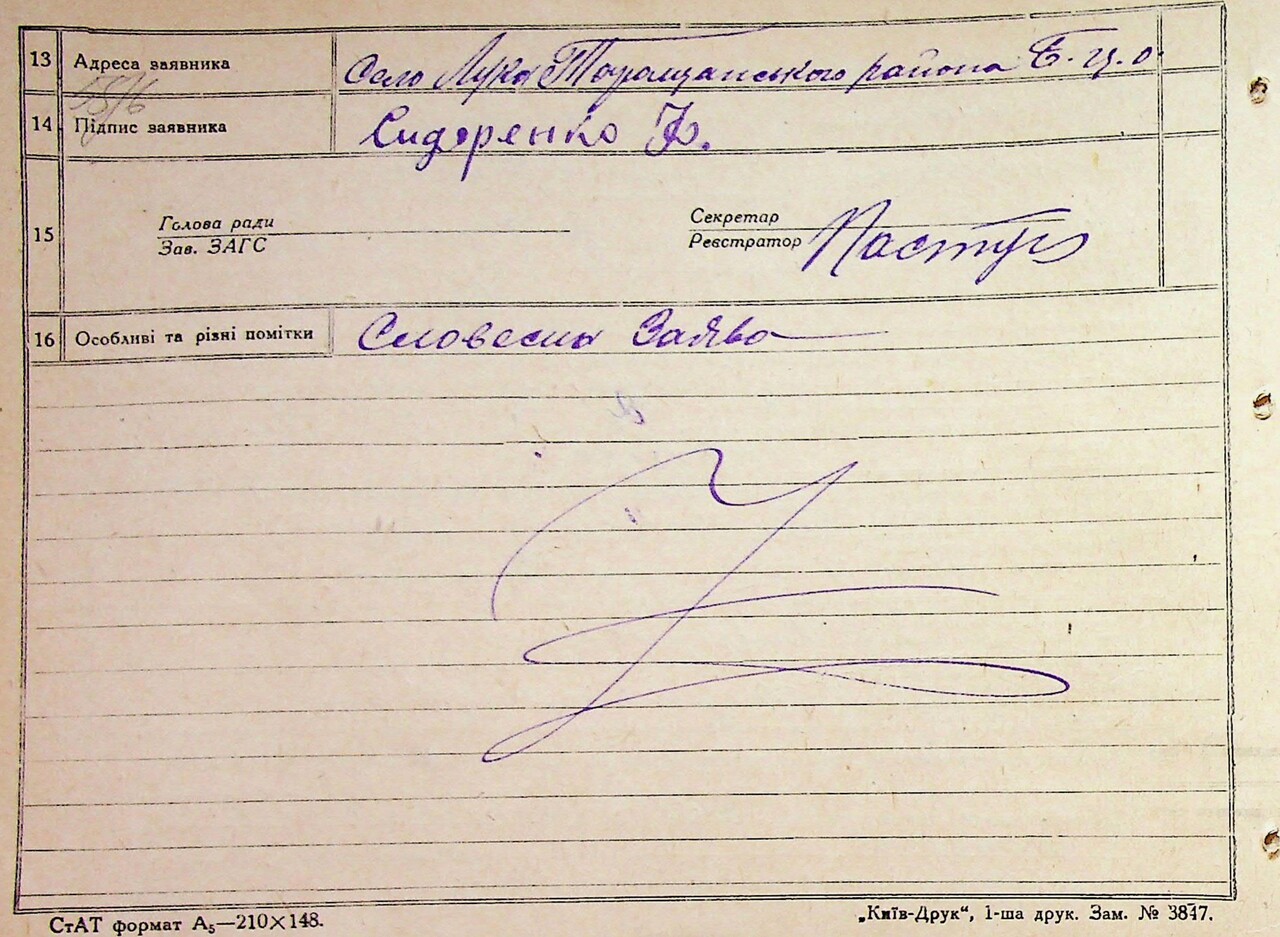 13 Адреса заявника Село Лука Таращанського района Б. ц. о
14 Підпис заявника Сидоренко
15 Голова ради Секретар
Зав. ЗАГС Реєстратор Пастух
16 Особливі та різні помітки Словесна Заява
СтАТ формат А₅—210×148. „Київ-Друк“, 1-ша друк. Зам. № 3847.